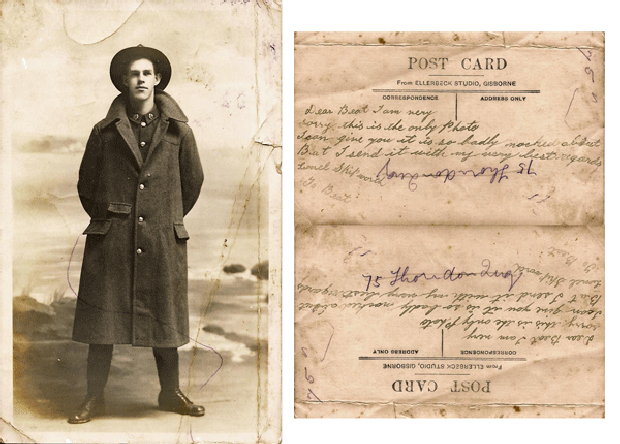 POST CARD
From ELLERBECK STUDIO, GISBORNE
CORRESPONDENCE ADDRESS ONLY
Dear Beat I am very
sorry this is the only Photo
I can give you it is so badly nocked about
But I send it with my very best regards
Lionel
To Beat
75 Thorndon Quay
75 Thorndon Quay
To Beat
Lionel
But I send it with my very best regards
I can give you it is so badly nocked about
sorry this is the only Photo
Dear Beat I am very
ADDRESS ONLY CORRESPONDENCE
From ELLERBECK STUDIO, GISBORNE
POST CARD